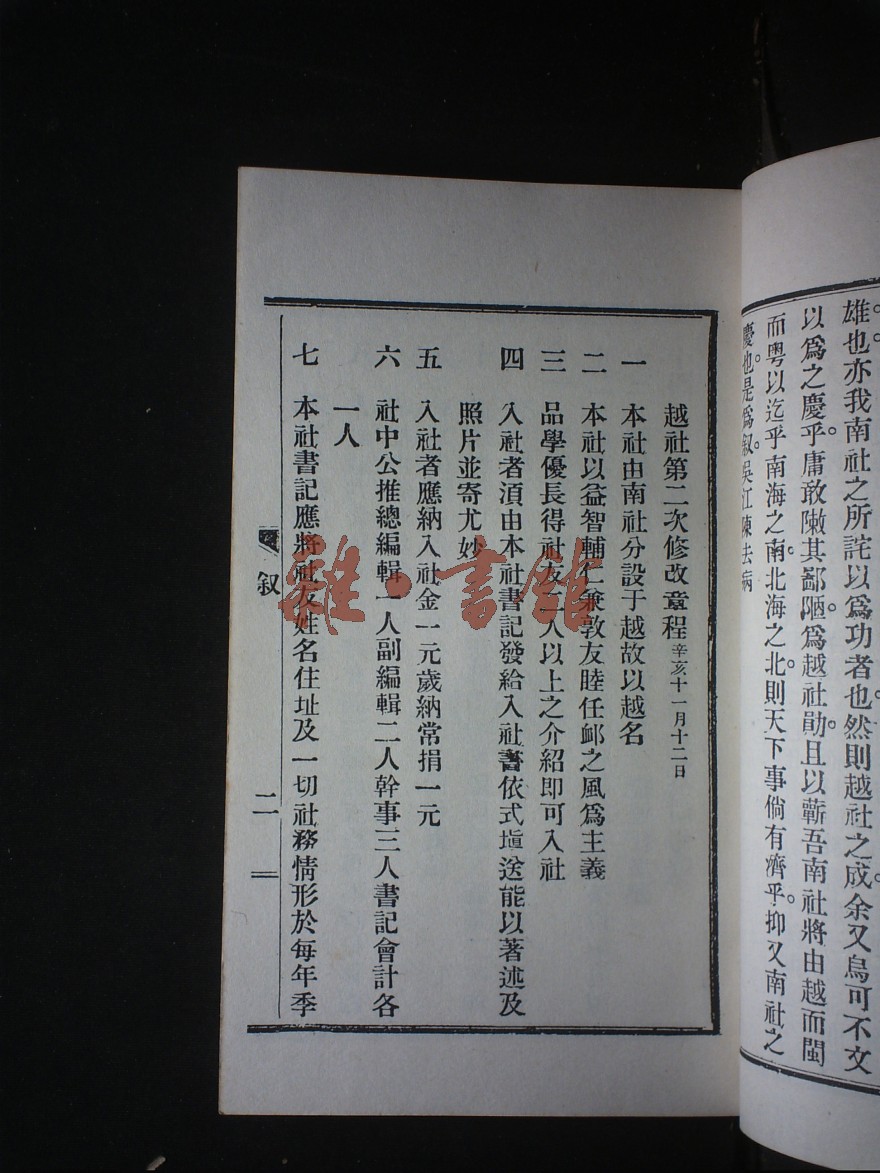 雄也。亦我南社之所詫以爲功者也。然則越社之成。余又烏可不文
以爲之慶乎。庸敢陳其鄙陋。爲越社勛。且以蘄吾南社將由越而閩
而粵。以迄乎南海之南。北海之北。則天下事倘有濟乎。抑又南社之
慶也。是爲叙。吳江陳去病
越社第二次修改章程 辛亥十一月十二日
一 本社由南社分設于越故以越名
二 本社以益智輔仁兼敦友睦任卹之風爲主義
三 品學優長得社友二人以上之介紹即可入社
四 入社者須由本社書記發給入社書依式塡送能以著述及
照片並寄尤妙
五 入社者應納入社金一元歲納常捐一元
六 社中公推總編輯一人副編輯二人幹事三人書記會計各
一人
七 本社書記應將社友姓名住址及一切社務情形於每年季
叙
二
雜·書館